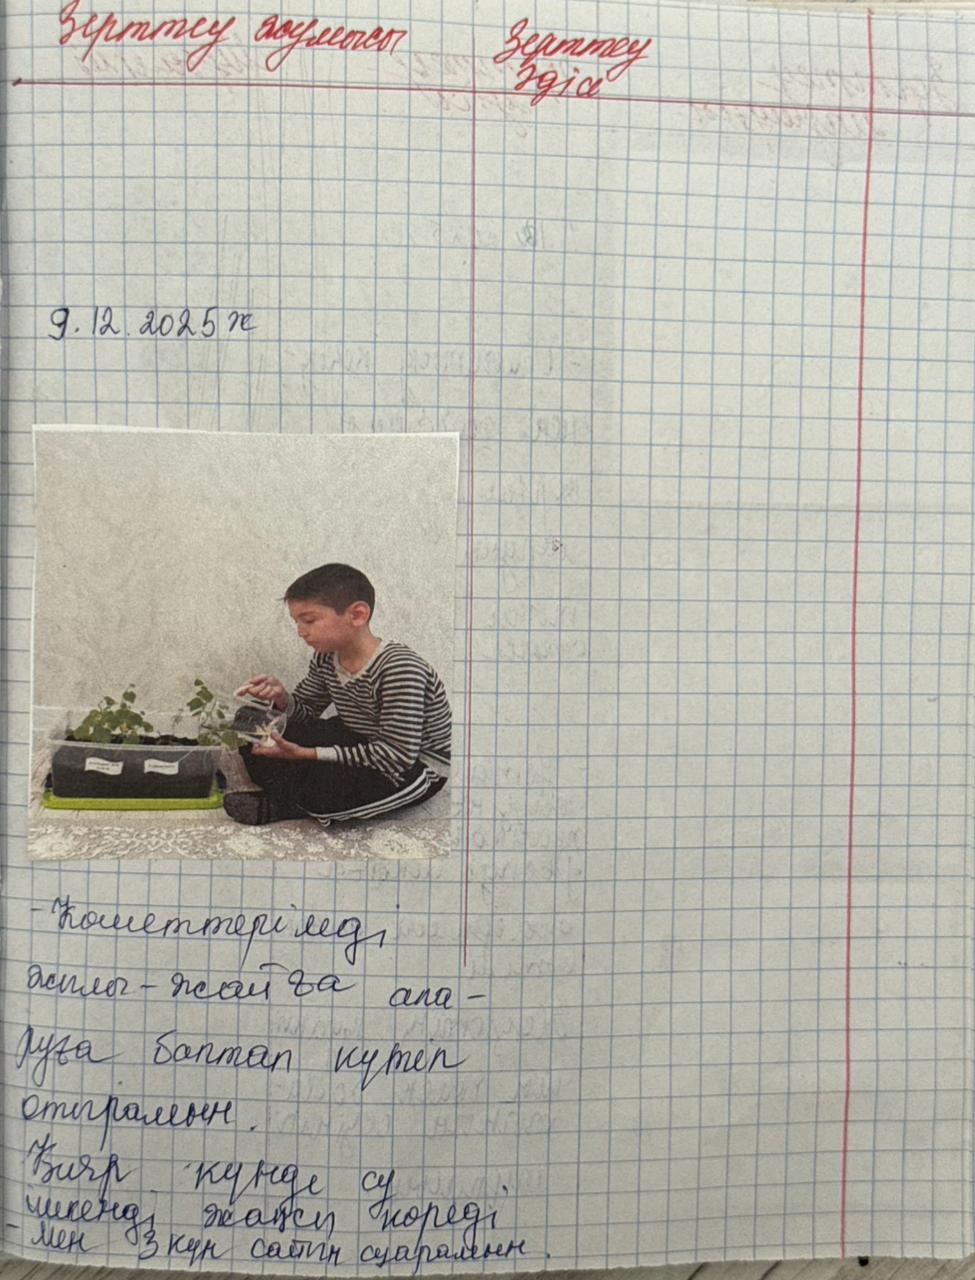 Зерттеу жұмысы
Зерттеу
Әдісі
9.12.2025 ж
- Көшеттерімді
жылы-жайға апа-
руға баптап күтіп
отырамын.
Кияр күнде су
ішкенді жақсы көреді
- мен 3 күн сайын суарамын.